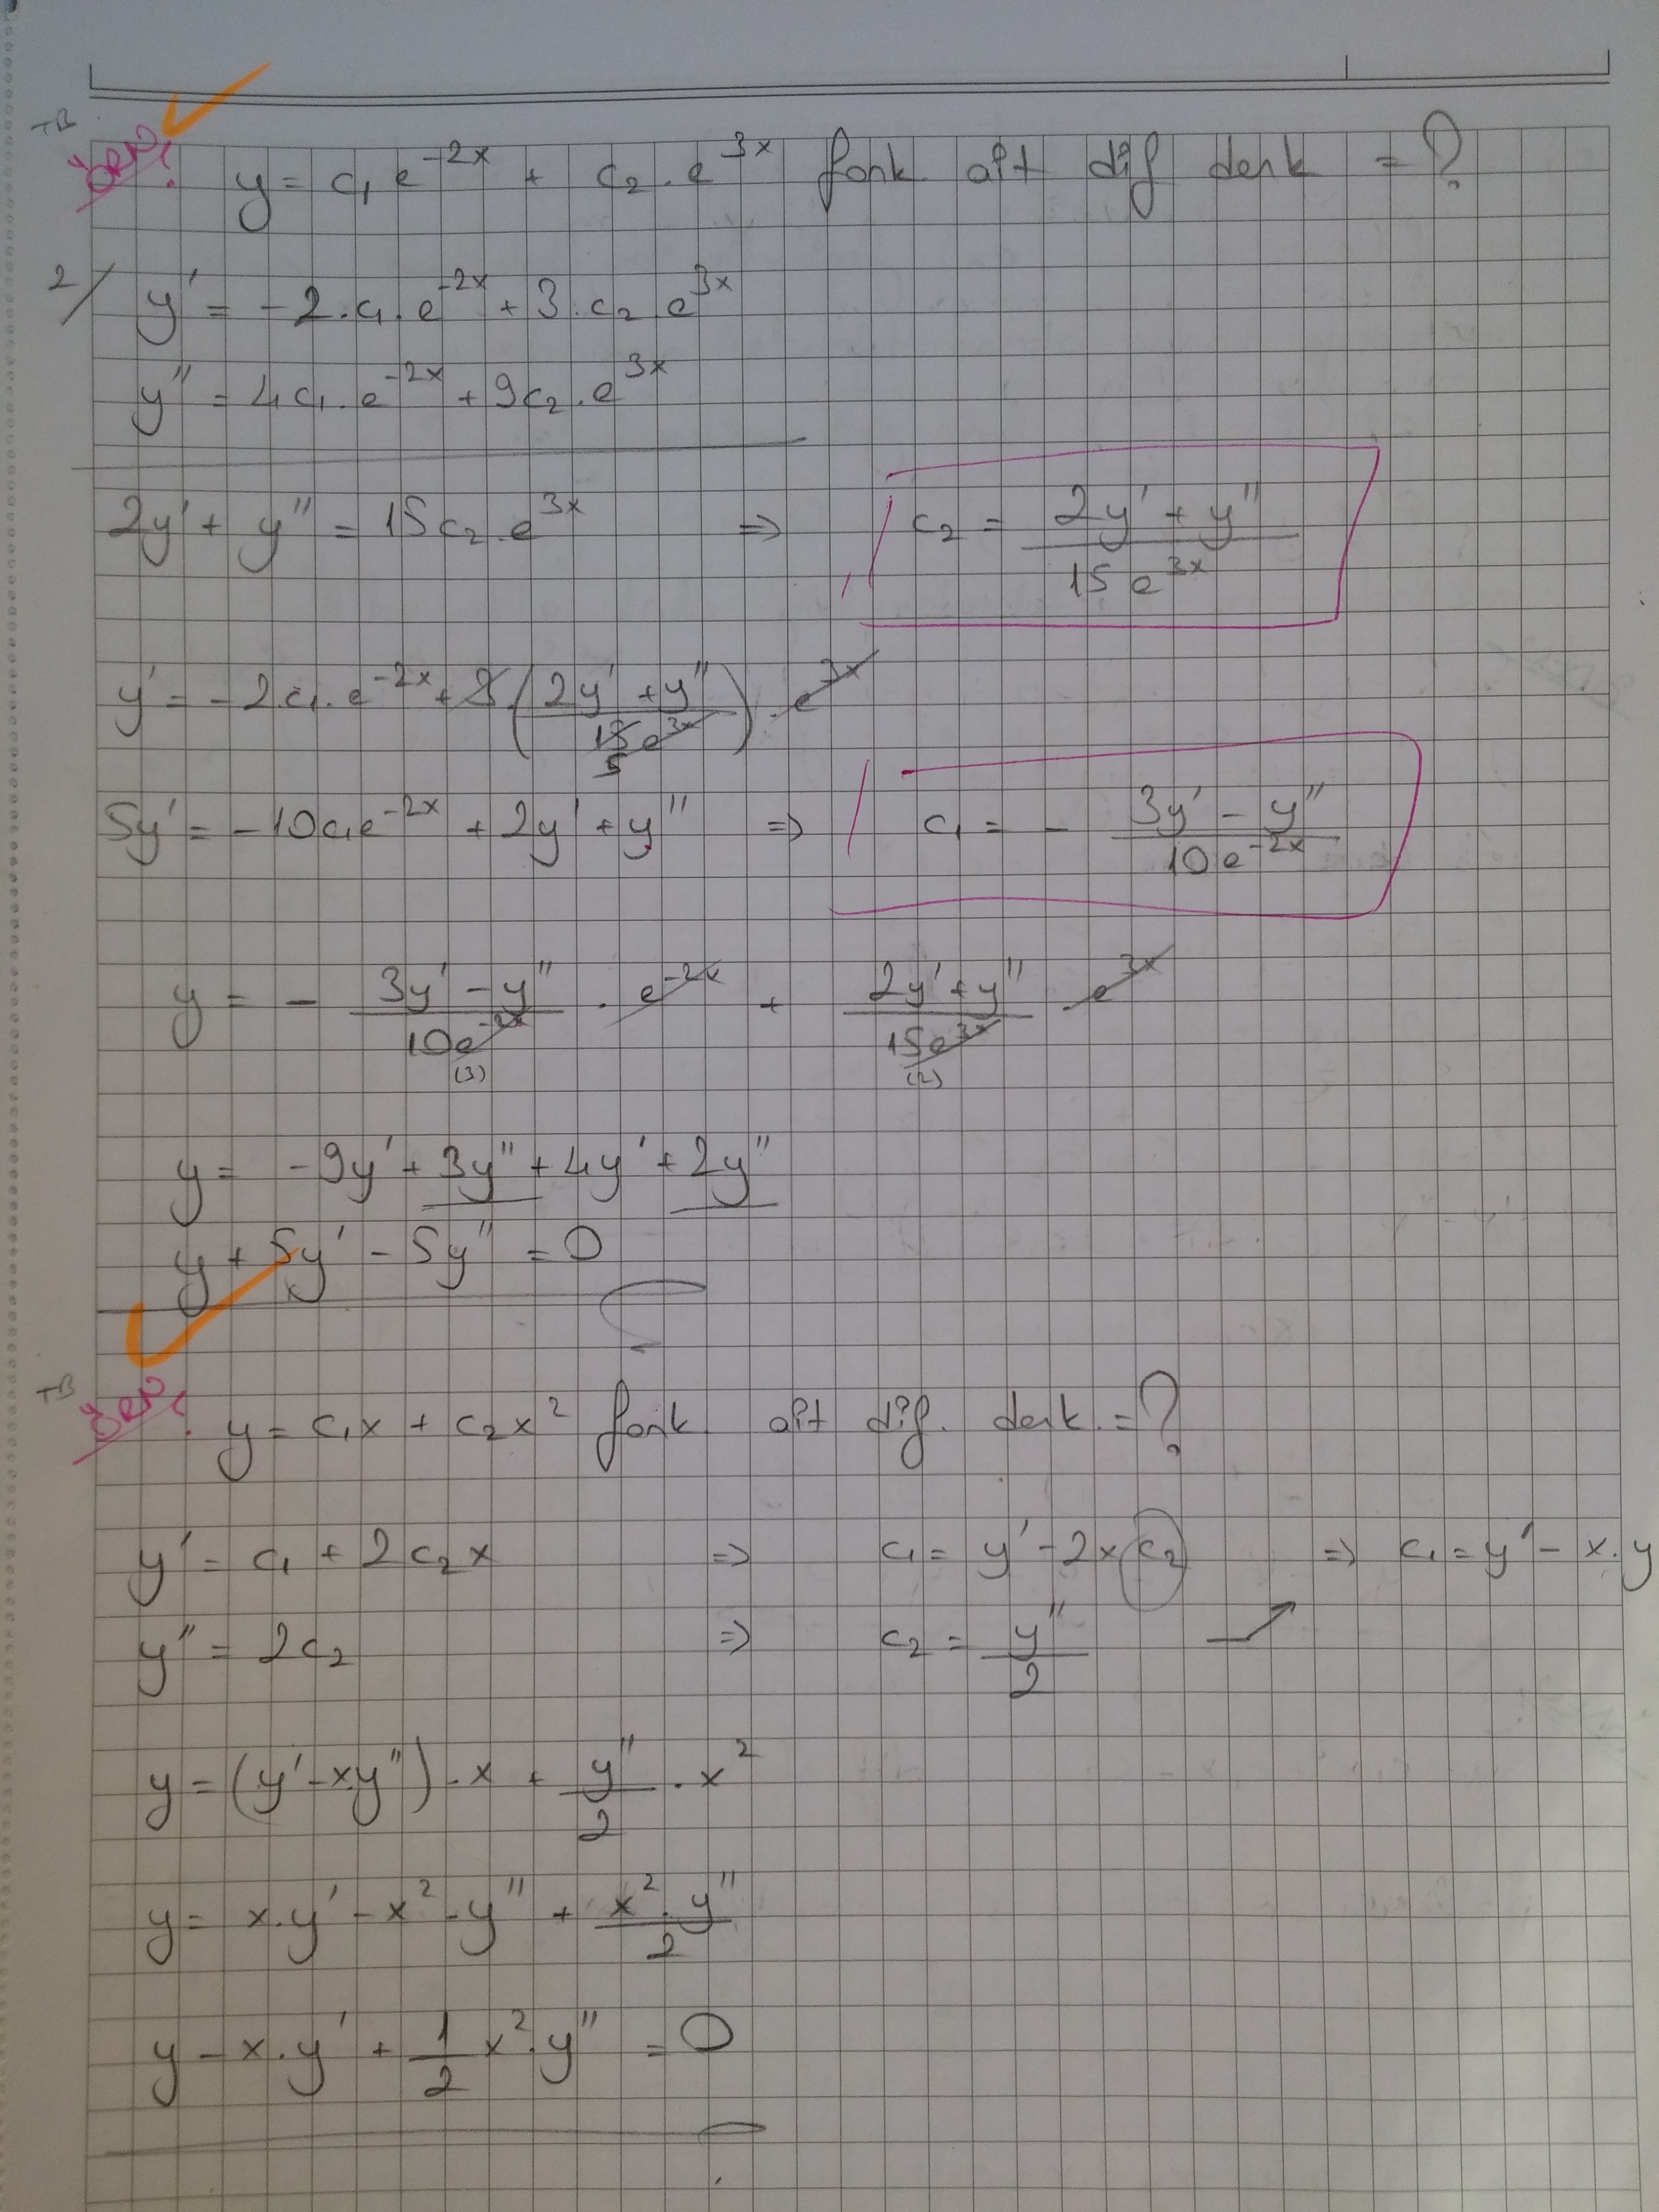 TB
ÖRN: y = c₁ e⁻²ˣ + c₂ . e³ˣ fonk. ait dif denk = ?
2/ y' = -2.c₁.e⁻²ˣ + 3.c₂.e³ˣ
y'' = 4c₁.e⁻²ˣ + 9c₂.e³ˣ
2y' + y'' = 15c₂.e³ˣ ⇒ c₂ = (2y' + y'')/(15e³ˣ)
y' = -2c₁.e⁻²ˣ + 3.((2y' + y'')/(15e³ˣ)) . e³ˣ
5
5y' = -10c₁e⁻²ˣ + 2y' + y'' ⇒ c₁ = - (3y' - y'')/(10e⁻²ˣ)
y = - (3y' - y'')/(10e⁻²ˣ) . e⁻²ˣ + (2y' + y'')/(15e³ˣ) . e³ˣ
(3) (2)
y = -9y' + 3y'' + 4y' + 2y''
y + 5y' - 5y'' = 0
TB
ÖRN: y = c₁x + c₂x² fonk. ait dif. denk. = ?
y' = c₁ + 2c₂x ⇒ c₁ = y' - 2xc₂ ⇒ c₁ = y' - x.y
y'' = 2c₂ ⇒ c₂ = y''/2
y = (y' - xy'').x + y''/2 . x²
y = x.y' - x².y'' + (x².y'')/2
y - x.y' + 1/2 x².y'' = 0